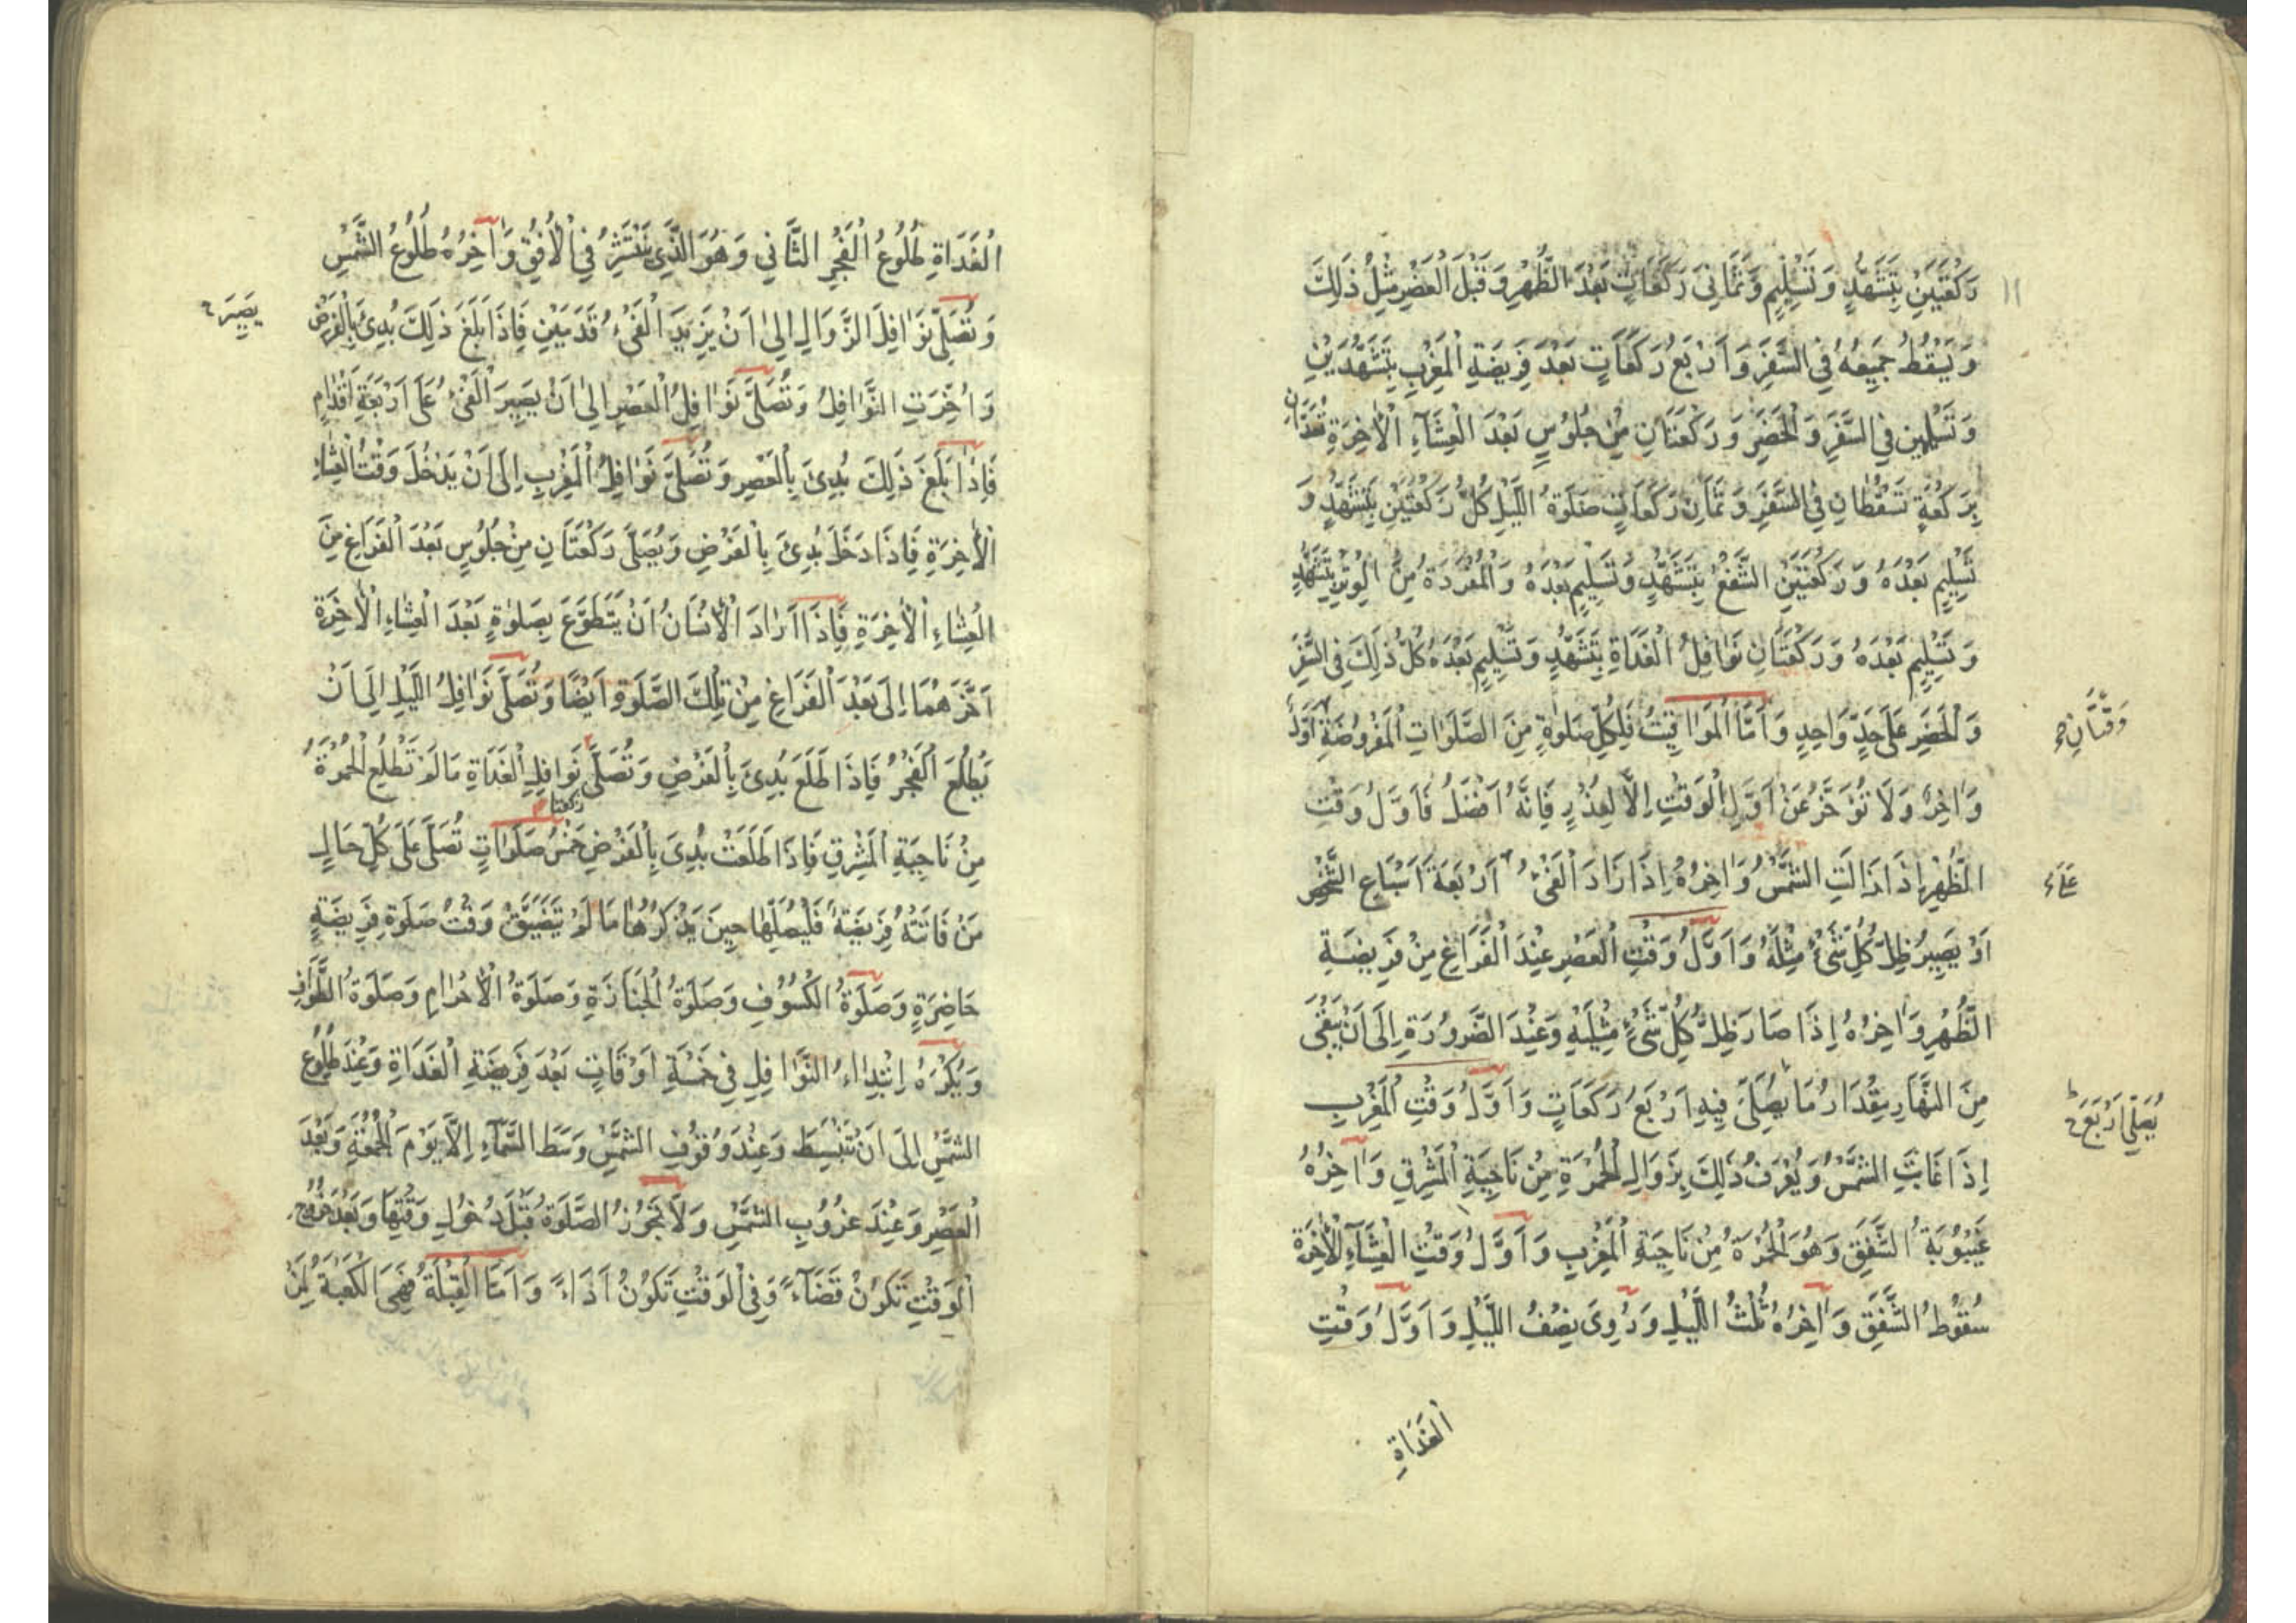 ١١
رَكْعَتَيْنِ بِتَشَهُّدٍ وَتَسْلِيمٍ وَثَمَانِىَ رَكَعَاتٍ بَعْدَ الظُّهْرِ وَقَبْلَ الْعَصْرِ مِثْلُ ذَلِكَ
وَيَسْقُطُ جَمِيعُهُ فِى السَّفَرِ وَاَرْبَعُ رَكَعَاتٍ بَعْدَ فَرِيضَةِ الْمَغْرِبِ بِتَشَهُّدَيْنِ
وَتَسْلِيمَيْنِ فِى السَّفَرِ وَالْحَضَرِ وَرَكْعَتَانِ مِنْ جُلُوسٍ بَعْدَ الْعِشَآءِ الْاٰخِرَةِ تُعَدَّانِ
بِرَكْعَةٍ تَسْقُطَانِ فِى السَّفَرِ وَثَمَانِ رَكَعَاتٍ صَلَوةُ اللَّيْلِ كُلُّ رَكْعَتَيْنِ بِتَشَهُّدٍ وَ
تَسْلِيمٍ بَعْدَهُ وَرَكْعَتَيْنِ الشَّفْعُ بِتَشَهُّدٍ وَتَسْلِيمٍ بَعْدَهُ وَالْمُفْرَدَةُ مِنَ الْوِتْرِ بِتَشَهُّدٍ
وَتَسْلِيمٍ بَعْدَهُ وَرَكْعَتَانِ نَوَافِلُ الْغَدَاةِ بِتَشَهُّدٍ وَتَسْلِيمٍ بَعْدَهُ كُلُّ ذَلِكَ فِى السَّفَرِ
وَالْحَضَرِ عَلَى حَدٍّ وَاحِدٍ وَاَمَّا الْمَوَاقِيتُ فَلِكُلِّ صَلٰوةٍ مِنَ الصَّلَوَاتِ الْمَفْرُوضَةِ اَوَّلٌ
وَقْتَانِ
وَاٰخِرٌ وَلَا تُؤَخَّرُ عَنْ اَوَّلِ الْوَقْتِ اِلَّا لِعُذْرٍ فَاِنَّهُ اَفْضَلُ فَاَوَّلُ وَقْتِ
الظُّهْرِ اِذَا زَالَتِ الشَّمْسُ وَاٰخِرُهُ اِذَا زَادَ الْفَىْءُ اَرْبَعَةَ اَسْبَاعِ الشَّخْصِ
اَوْ يَصِيرُ ظِلُّ كُلِّ شَىْءٍ مِثْلَهُ وَاَوَّلُ وَقْتِ الْعَصْرِ عِنْدَ الْفَرَاغِ مِنْ فَرِيضَةِ
الظُّهْرِ وَاٰخِرُهُ اِذَا صَارَ ظِلُّ كُلِّ شَىْءٍ مِثْلَيْهِ وَعِنْدَ الضَّرُورَةِ اِلَى اَنْ يَبْقَى
مِنَ النَّهَارِ مِقْدَارُ مَا يُصَلَّى فِيهِ اَرْبَعُ رَكَعَاتٍ وَاَوَّلُ وَقْتِ الْمَغْرِبِ
يُصَلِّى اَرْبَعَ
اِذَا غَابَتِ الشَّمْسُ وَيُعْرَفُ ذَلِكَ بِزَوَالِ الْحُمْرَةِ مِنْ نَاحِيَةِ الْمَشْرِقِ وَاٰخِرُهُ
غَيْبُوبَةُ الشَّفَقِ وَهُوَ الْحُمْرَةُ مِنْ نَاحِيَةِ الْمَغْرِبِ وَاَوَّلُ وَقْتِ الْعِشَآءِ الْاٰخِرَةِ
سُقُوطُ الشَّفَقِ وَاٰخِرُهُ ثُلْثُ اللَّيْلِ وَرُوِىَ نِصْفُ اللَّيْلِ وَاَوَّلُ وَقْتِ
الْغَدَاةِ
الْغَدَاةِ طُلُوعُ الْفَجْرِ الثَّانِي وَهُوَ الَّذِى يَنْتَشِرُ فِي الْاُفُقِ وَاٰخِرُهُ طُلُوعُ الشَّمْسِ
وَتُصَلَّى نَوَافِلُ الزَّوَالِ اِلىٰ اَنْ يَزِيدَ الْفَىْءُ قَدَمَيْنِ فَاِذَا بَلَغَ ذَلِكَ بُدِئَ بِالْفَرْضِ
يَصِيرَ
وَاُخِّرَتِ النَّوَافِلُ وَتُصَلَّى نَوَافِلُ الْعَصْرِ اِلىٰ اَنْ يَصِيرَ الْفَىْءُ عَلَى اَرْبَعَةِ اَقْدَامٍ
فَاِذَا بَلَغَ ذَلِكَ بُدِئَ بِالْعَصْرِ وَتُصَلَّى نَوَافِلُ الْمَغْرِبِ اِلَى اَنْ يَدْخُلَ وَقْتُ الْعِشَاءِ
الْاٰخِرَةِ فَاِذَا دَخَلَ بُدِئَ بِالْفَرْضِ وَيُصَلَّى رَكْعَتَانِ مِنْ جُلُوسٍ بَعْدَ الْفَرَاغِ مِنَ
الْعِشَاءِ الْاٰخِرَةِ فَاِذَا اَرَادَ الْاِنْسَانُ اَنْ يَتَطَوَّعَ بِصَلٰوةٍ بَعْدَ الْعِشَاءِ الْاٰخِرَةِ
اَخَّرَهُمَا اِلَى بَعْدَ الْفَرَاغِ مِنْ تِلْكَ الصَّلَوةِ اَيْضًا وَتُصَلَّى نَوَافِلُ اللَّيْلِ اِلَى اَنْ
يَطْلُعَ الْفَجْرُ فَاِذَا طَلَعَ بُدِئَ بِالْفَرْضِ وَتُصَلَّى نَوَافِلِ الْغَدَاةِ مَا لَمْ تَطْلُعِ الْحُمْرَةُ
رَكْعَتَا
مِنْ نَاحِيَةِ الْمَشْرِقِ فَاِذَا طَلَعَتْ بُدِئَ بِالْفَرْضِ خَمْسُ صَلَوَاتٍ تُصَلَّى عَلَى كُلِّ حَالٍ
مَنْ فَاتَتْهُ فَرِيضَةٌ فَلْيُصَلِّهَا حِينَ يَذْكُرُهَا مَا لَمْ يَتَضَيَّقْ وَقْتُ صَلَوةِ فَرِيضَةٍ
حَاضِرَةٍ وَصَلَوةُ الْكُسُوفِ وَصَلَوةُ الْجَنَازَةِ وَصَلَوةُ الْاِحْرَامِ وَصَلَوةُ الطَّوَافِ
وَيُكْرَهُ اِبْتِدَاءُ النَّوَافِلِ فِي خَمْسَةِ اَوْقَاتٍ بَعْدَ فَرِيضَةِ الْغَدَاةِ وَعِنْدَ طُلُوعِ
الشَّمْسِ اِلَى اَنْ تَنْبَسِطَ وَعِنْدَ وُقُوفِ الشَّمْسِ وَسَطَ السَّمَآءِ اِلَّا يَوْمَ الْجُمُعَةِ وَبَعْدَ
الْعَصْرِ وَعِنْدَ غُرُوبِ الشَّمْسِ وَلَا تَجُوزُ الصَّلَوةُ قَبْلَ دُخُولِ وَقْتِهَا وَبَعْدَ خُرُوجِ
الْوَقْتِ تَكُونُ قَضَآءً وَفِى الْوَقْتِ تَكُونُ اَدَاءً وَاَمَّا الْقِبْلَةُ فَهِىَ الْكَعْبَةُ لِمَنْ